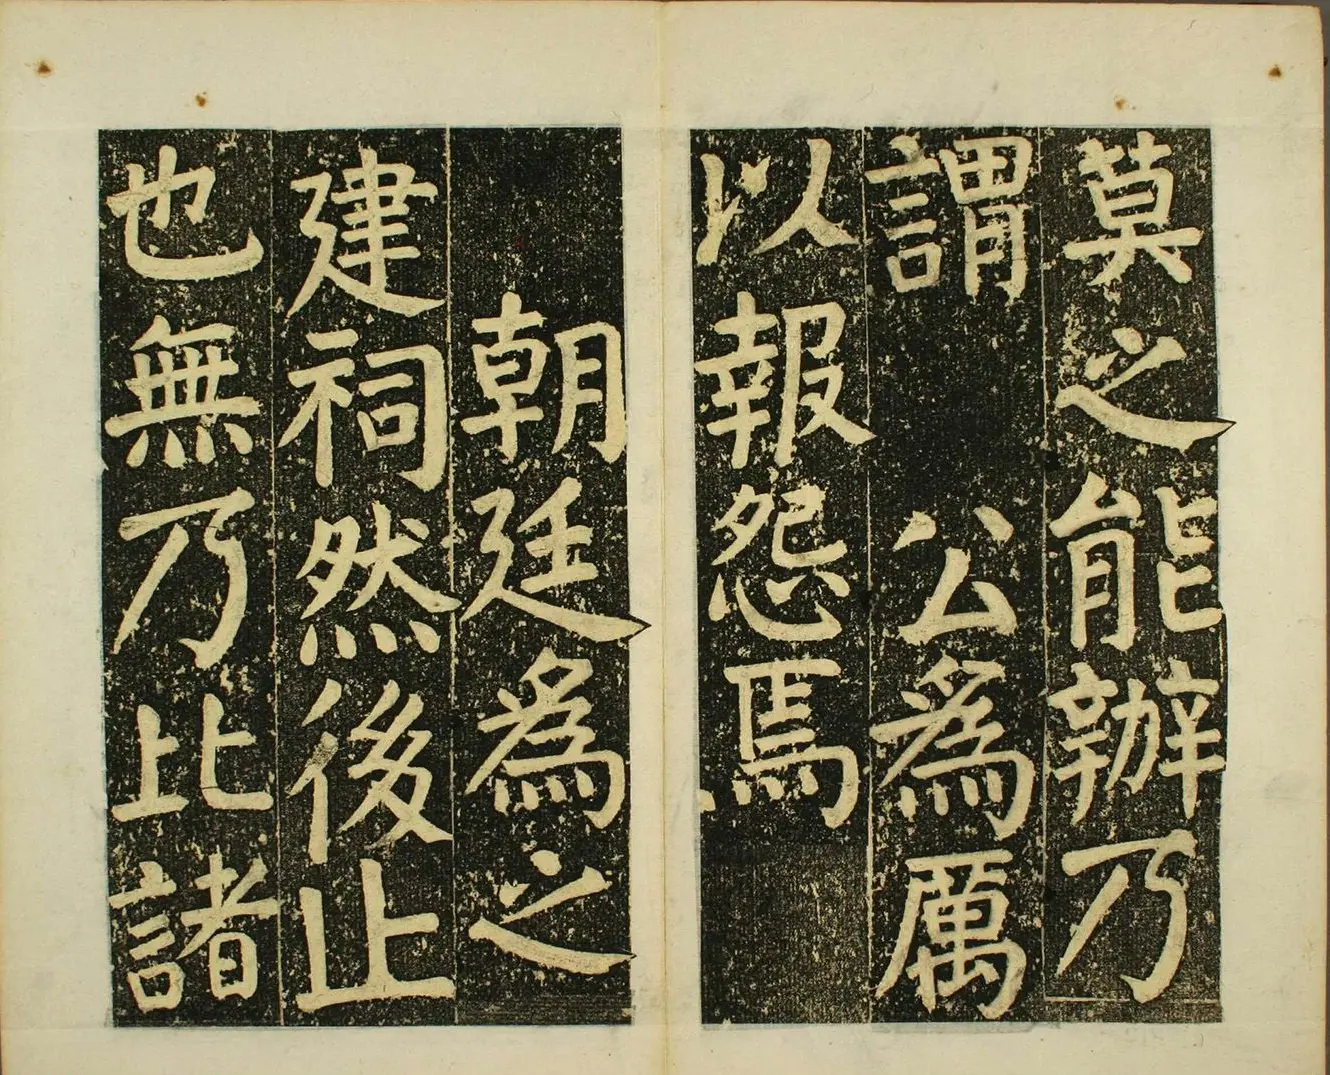 莫之能辦乃
謂　公爲厲
以報怨焉
朝廷爲之
建祠然後止
也無乃比諸